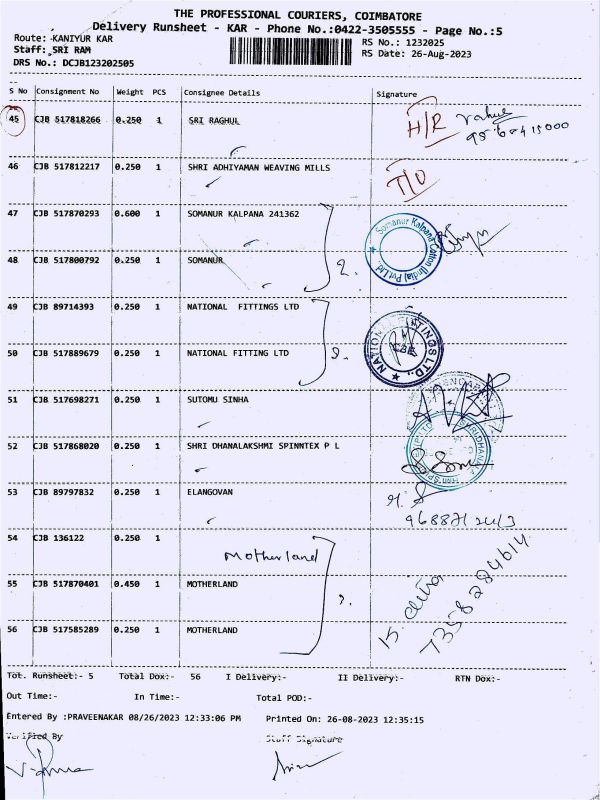 THE PROFESSIONAL COURIERS, COIMBATORE
Delivery Runsheet - KAR - Phone No.:0422-3505555 - Page No.:5
Route: KANIYUR KAR
RS No.: 1232025
Staff: SRI RAM
RS Date: 26-Aug-2023
DRS No.: DCJB123202505
S No Consignment No Weight PCS Consignee Details Signature
45 CJB 517818266 0.250 1 SRI RAGHUL H/R
46 CJB 517812217 0.250 1 SHRI ADHIYAMAN WEAVING MILLS T/O
47 CJB 517870293 0.600 1 SOMANUR KALPANA 241362
Somanur Kalpana Cotton (India) Pvt.Ltd.
48 CJB 517800792 0.250 1 SOMANUR 2.
49 CJB 89714393 0.250 1 NATIONAL FITTINGS LTD
NATIONAL FITTINGS LTD.,
CBE
50 CJB 517889679 0.250 1 NATIONAL FITTING LTD
51 CJB 517698271 0.250 1 SUTOMU SINHA
52 CJB 517868020 0.250 1 SHRI DHANALAKSHMI SPINNTEX P L
53 CJB 89797832 0.250 1 ELANGOVAN
54 CJB 136122 0.250 1 Motherland
55 CJB 517870401 0.450 1 MOTHERLAND
7358284614
56 CJB 517585289 0.250 1 MOTHERLAND
Tot. Runsheet:- 5 Total Dox:- 56 I Delivery:- II Delivery:- RTN Dox:-
Out Time:- In Time:- Total POD:-
Entered By :PRAVEENAKAR 08/26/2023 12:33:06 PM Printed On: 26-08-2023 12:35:15
Verified By Staff Signature